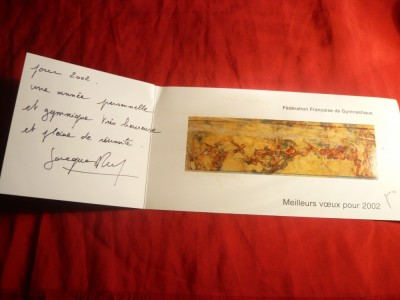 pour 2002.
une année personnelle
et gymnique très heureuse
et pleine de réussite.
Jacques
Fédération Française de Gymnastique
Meilleurs vœux pour 2002